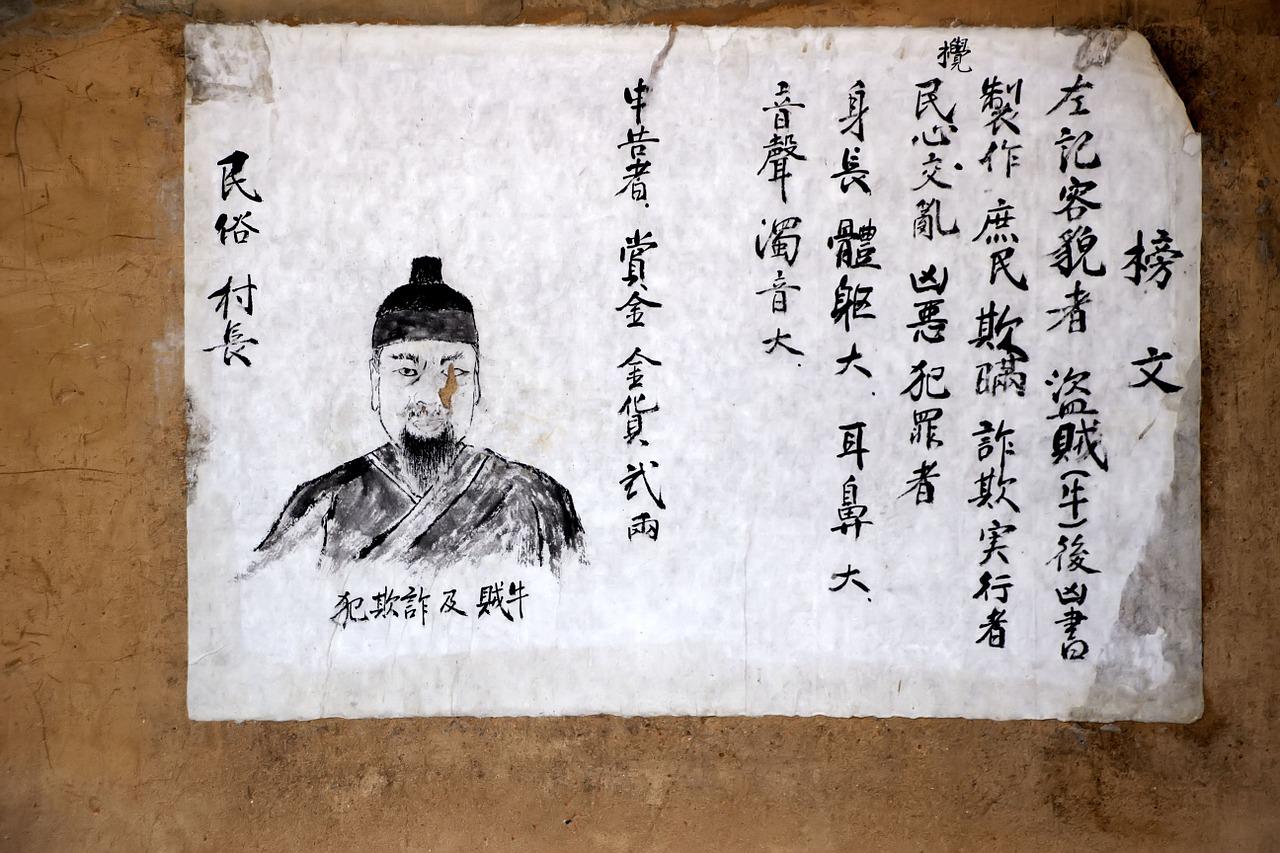 榜 文
左記容貌者 盜賊(牛)後凶書
製作 庶民 欺瞞 詐欺実行者
攪
民心交亂 凶惡 犯罪者
身長 體軀 大、耳鼻 大、
音聲 濁音大、
申告者、賞金 金貨 弍兩
犯欺詐及賊牛
民俗 村長